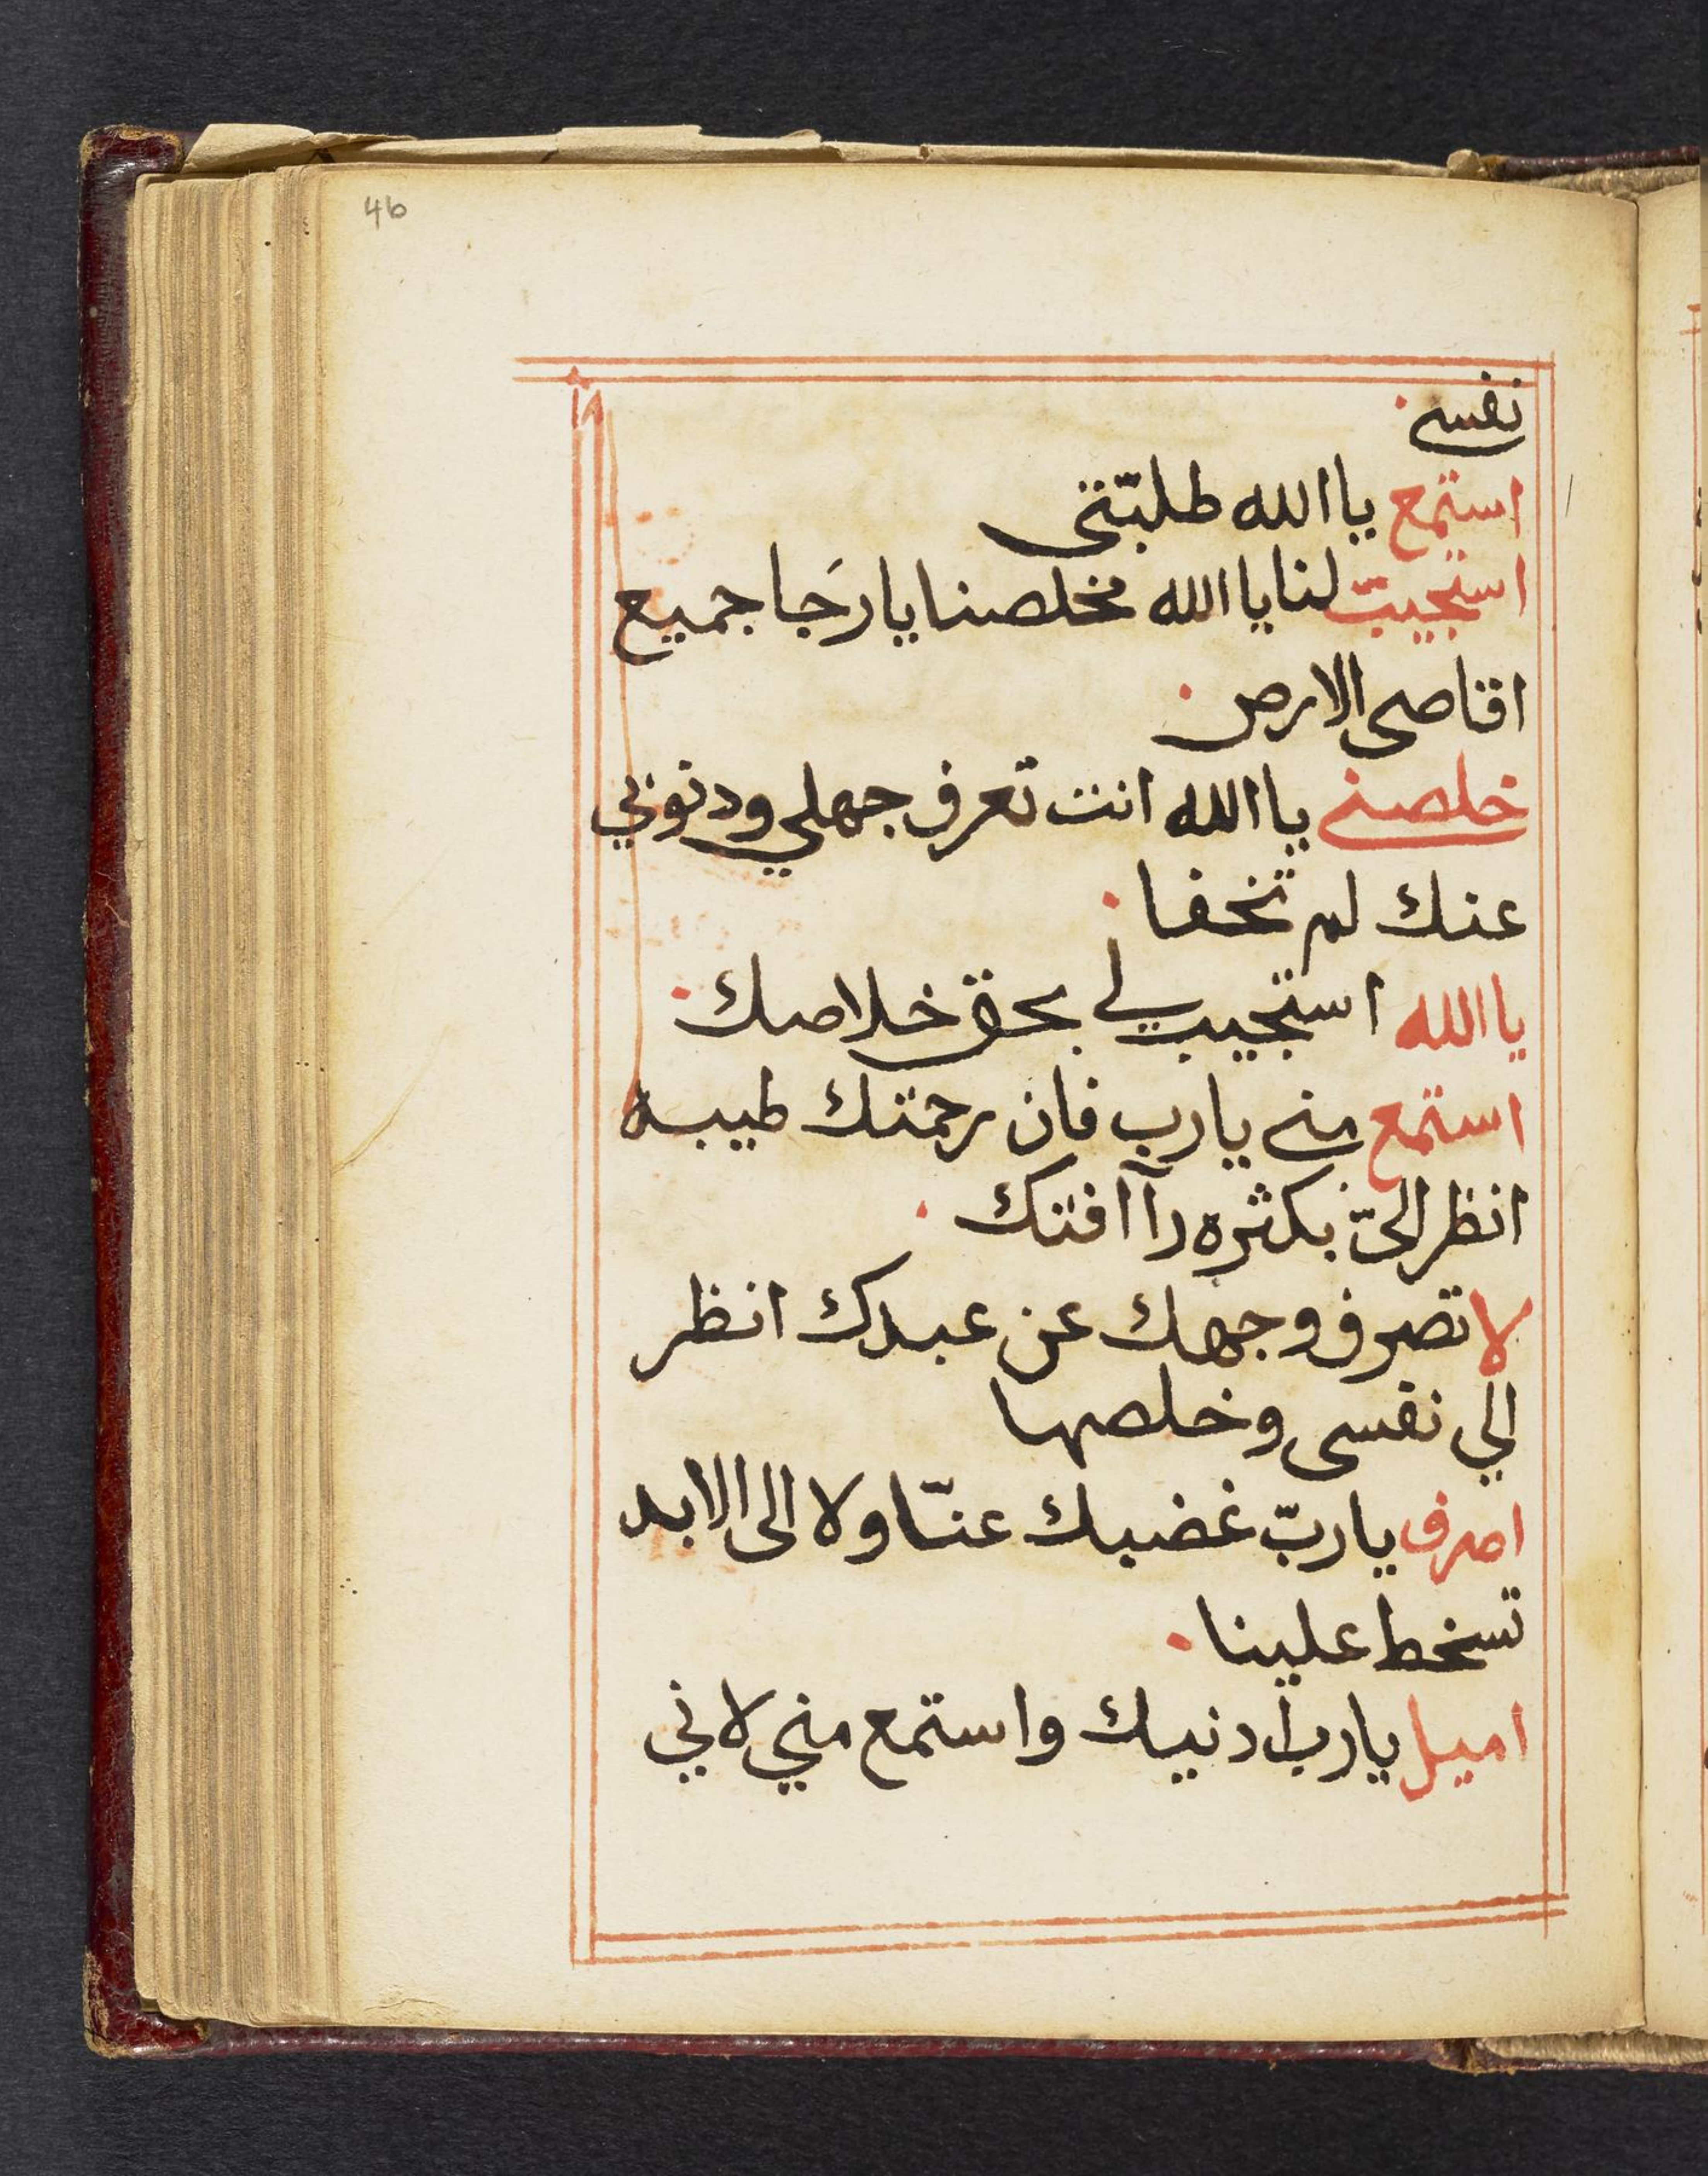 46
نفسي
استمع يا الله طلبتي
استجيب لنا يا الله مخلصنا يا رجا جميع
اقاصى الارض
خلصني يا الله انت تعرف جهلي ودنوبي
عنك لم تخفا
يا الله استجيب لي بحق خلاصك
استمع مني يارب فان رحمتك طيبة
انظر اليّ بكثره رآافتك
لا تصرف وجهك عن عبدك انظر
الي نفسى وخلصها
اصرف ياربّ غضبك عنّا ولا الى الابد
تسخط علينا
اميل يارب ادنيك واستمع مني لاني